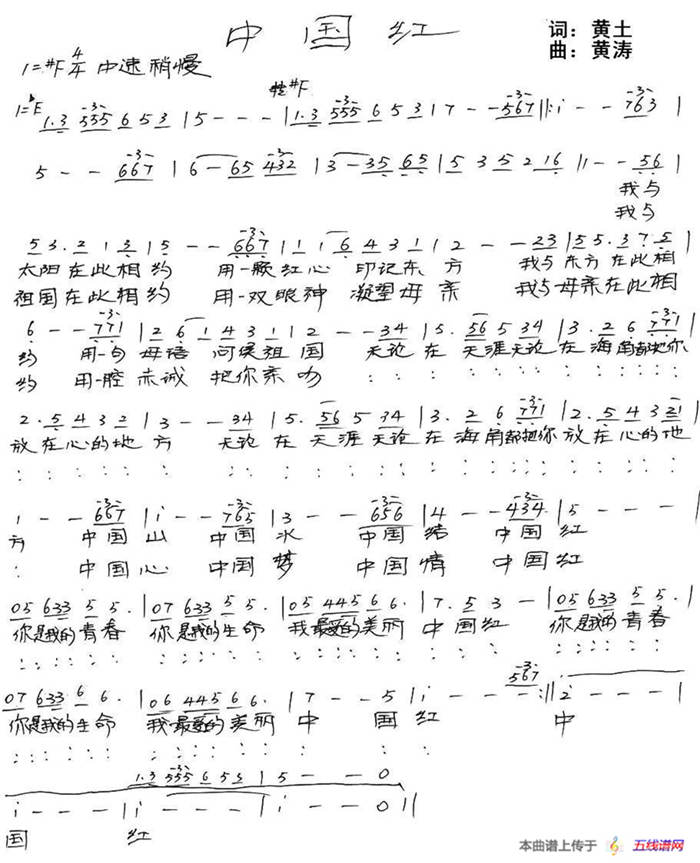 中国红
词：黄土
曲：黄涛
1=#F 4/4 中速稍慢
转#F
1=bE 1.3 555 6 5 3 | 5 - - - | 1.3 555 6 5 3 | 7 - - 567 |: i - - 763 |
5 - - 667 | 6 - 65 432 | 3 - 35 65 | 5 3 5 2 16 | 1 - - 56 |
我与
我与
5 3. 2 1 3 | 5 - - 667 | 1 1 6 4 3 1 | 2 - - 23 | 5 5. 3 7. 5 |
太阳在此相约 用一颗红心 印记东方 我与东方在此相
祖国在此相约 用一双眼神 凝望母亲 我与母亲在此相
6 - - 771 | 2 6 1 4 3 1 | 2 - - 34 | 5. 56 5 34 | 3. 2 6 771 |
约 用一句母语 问候祖国 无论在天涯无论在海南都把你
约 用一腔赤诚 把你亲吻
2. 5 4 3 2 | 3 - - 34 | 5. 56 5 34 | 3. 2 6 771 | 2. 5 4 3 21 |
放在心的地方 无论在天涯无论在海南都把你放在心的地
1 - - 667 | i - - 765 | 3 - - 656 | 4 - - 434 | 5 - - - |
方 中国山 中国水 中国结 中国红
: 中国心 中国梦 中国情 中国红
05 633 5 5. | 07 633 5 5. | 05 445 6 6. | 7. 5 3 - | 05 633 5 5. |
你是我的青春 你是我的生命 我最爱的美丽 中国红 你是我的青春
567
07 633 6 6. | 06 445 6 6. | 7 - - 5 | i - - - :| 2 - - - |
你是我的生命 我最爱的美丽 中国红 中
1.3 555 6 5 3 | 5 - - 0
i - - - | i - - - | i - - 0 ||
国 红
本曲谱上传于 五线谱网